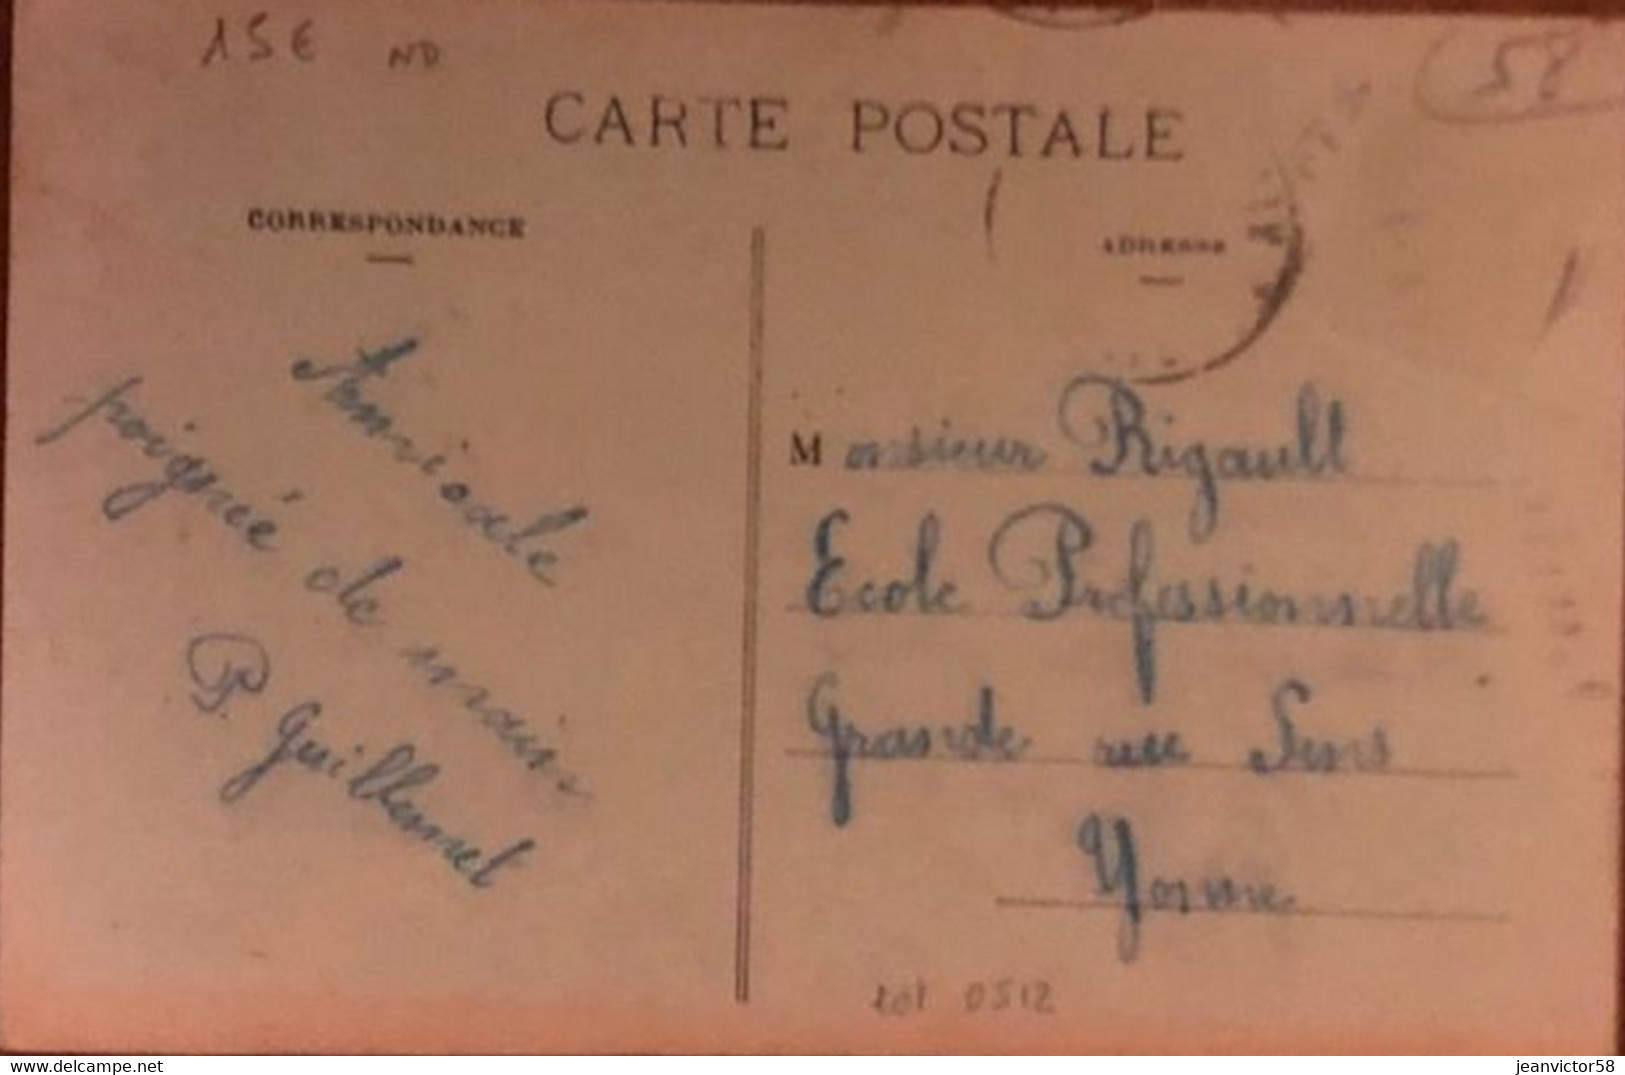 15€ ND
58
CARTE POSTALE
CORRESPONDANCE
ADRESSE
Amicale
poignée de main
P. Guillemet
Monsieur Rigault
Ecole Professionnelle
Grande rue Sens
Yonne
lot 0512
jeanvictor58